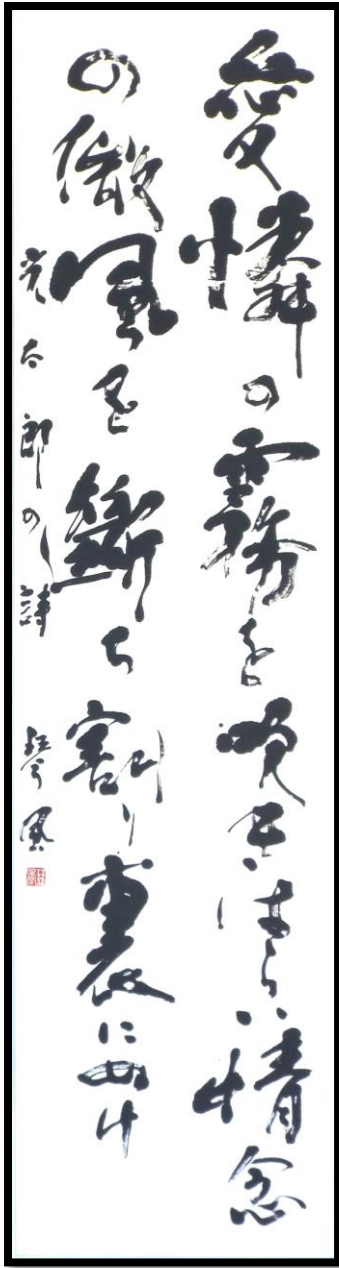 愛憐の霧を吹きはらい情念
の微風を断ち割り裏にぬけ
光太郎の詩
琴風